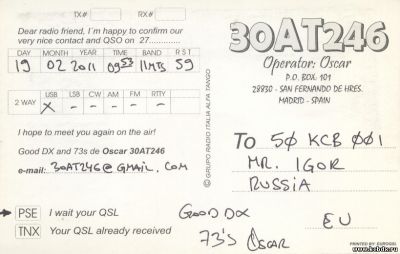 TX# RX#
Dear radio friend, I'm happy to confirm our
very nice contact and QSO on 27..........
DAY MONTH YEAR TIME BAND R S T
19 02 2011 0953 11MTS 59
USB LSB CW AM FM RTTY
2 WAY X - - - - -
I hope to meet you again on the air!
Good DX and 73s de Oscar 30AT246
e-mail: 30AT246@GMAIL.COM
PSE I wait your QSL
TNX Your QSL already received
© GRUPO RADIO ITALIA ALFA TANGO
30AT246
Operator: Oscar
P.O. BOX. 101
28830 - SAN FERNANDO DE HRES.
MADRID - SPAIN
To 50 KCB 001
MR. IGOR
RUSSIA
EU
GOOD DX
73'S OSCAR
PRINTED BY EUROQSL